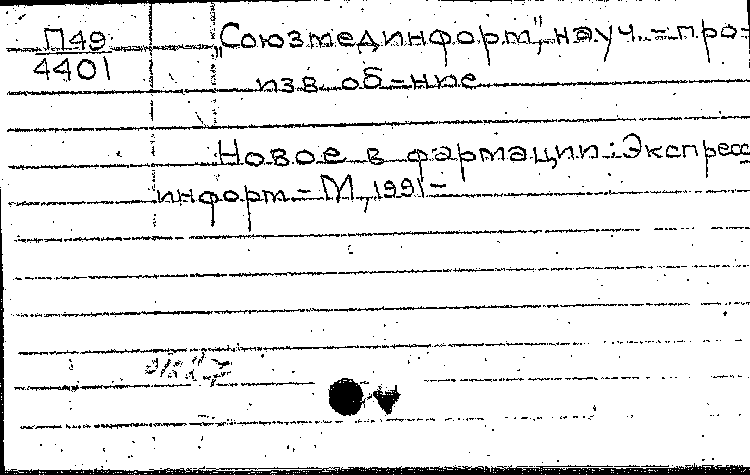 П49
4401
"Союзмединформ", науч.-про-
изв. об-ние
Новое в фармации: Экспресс
информ.- М, 1991-